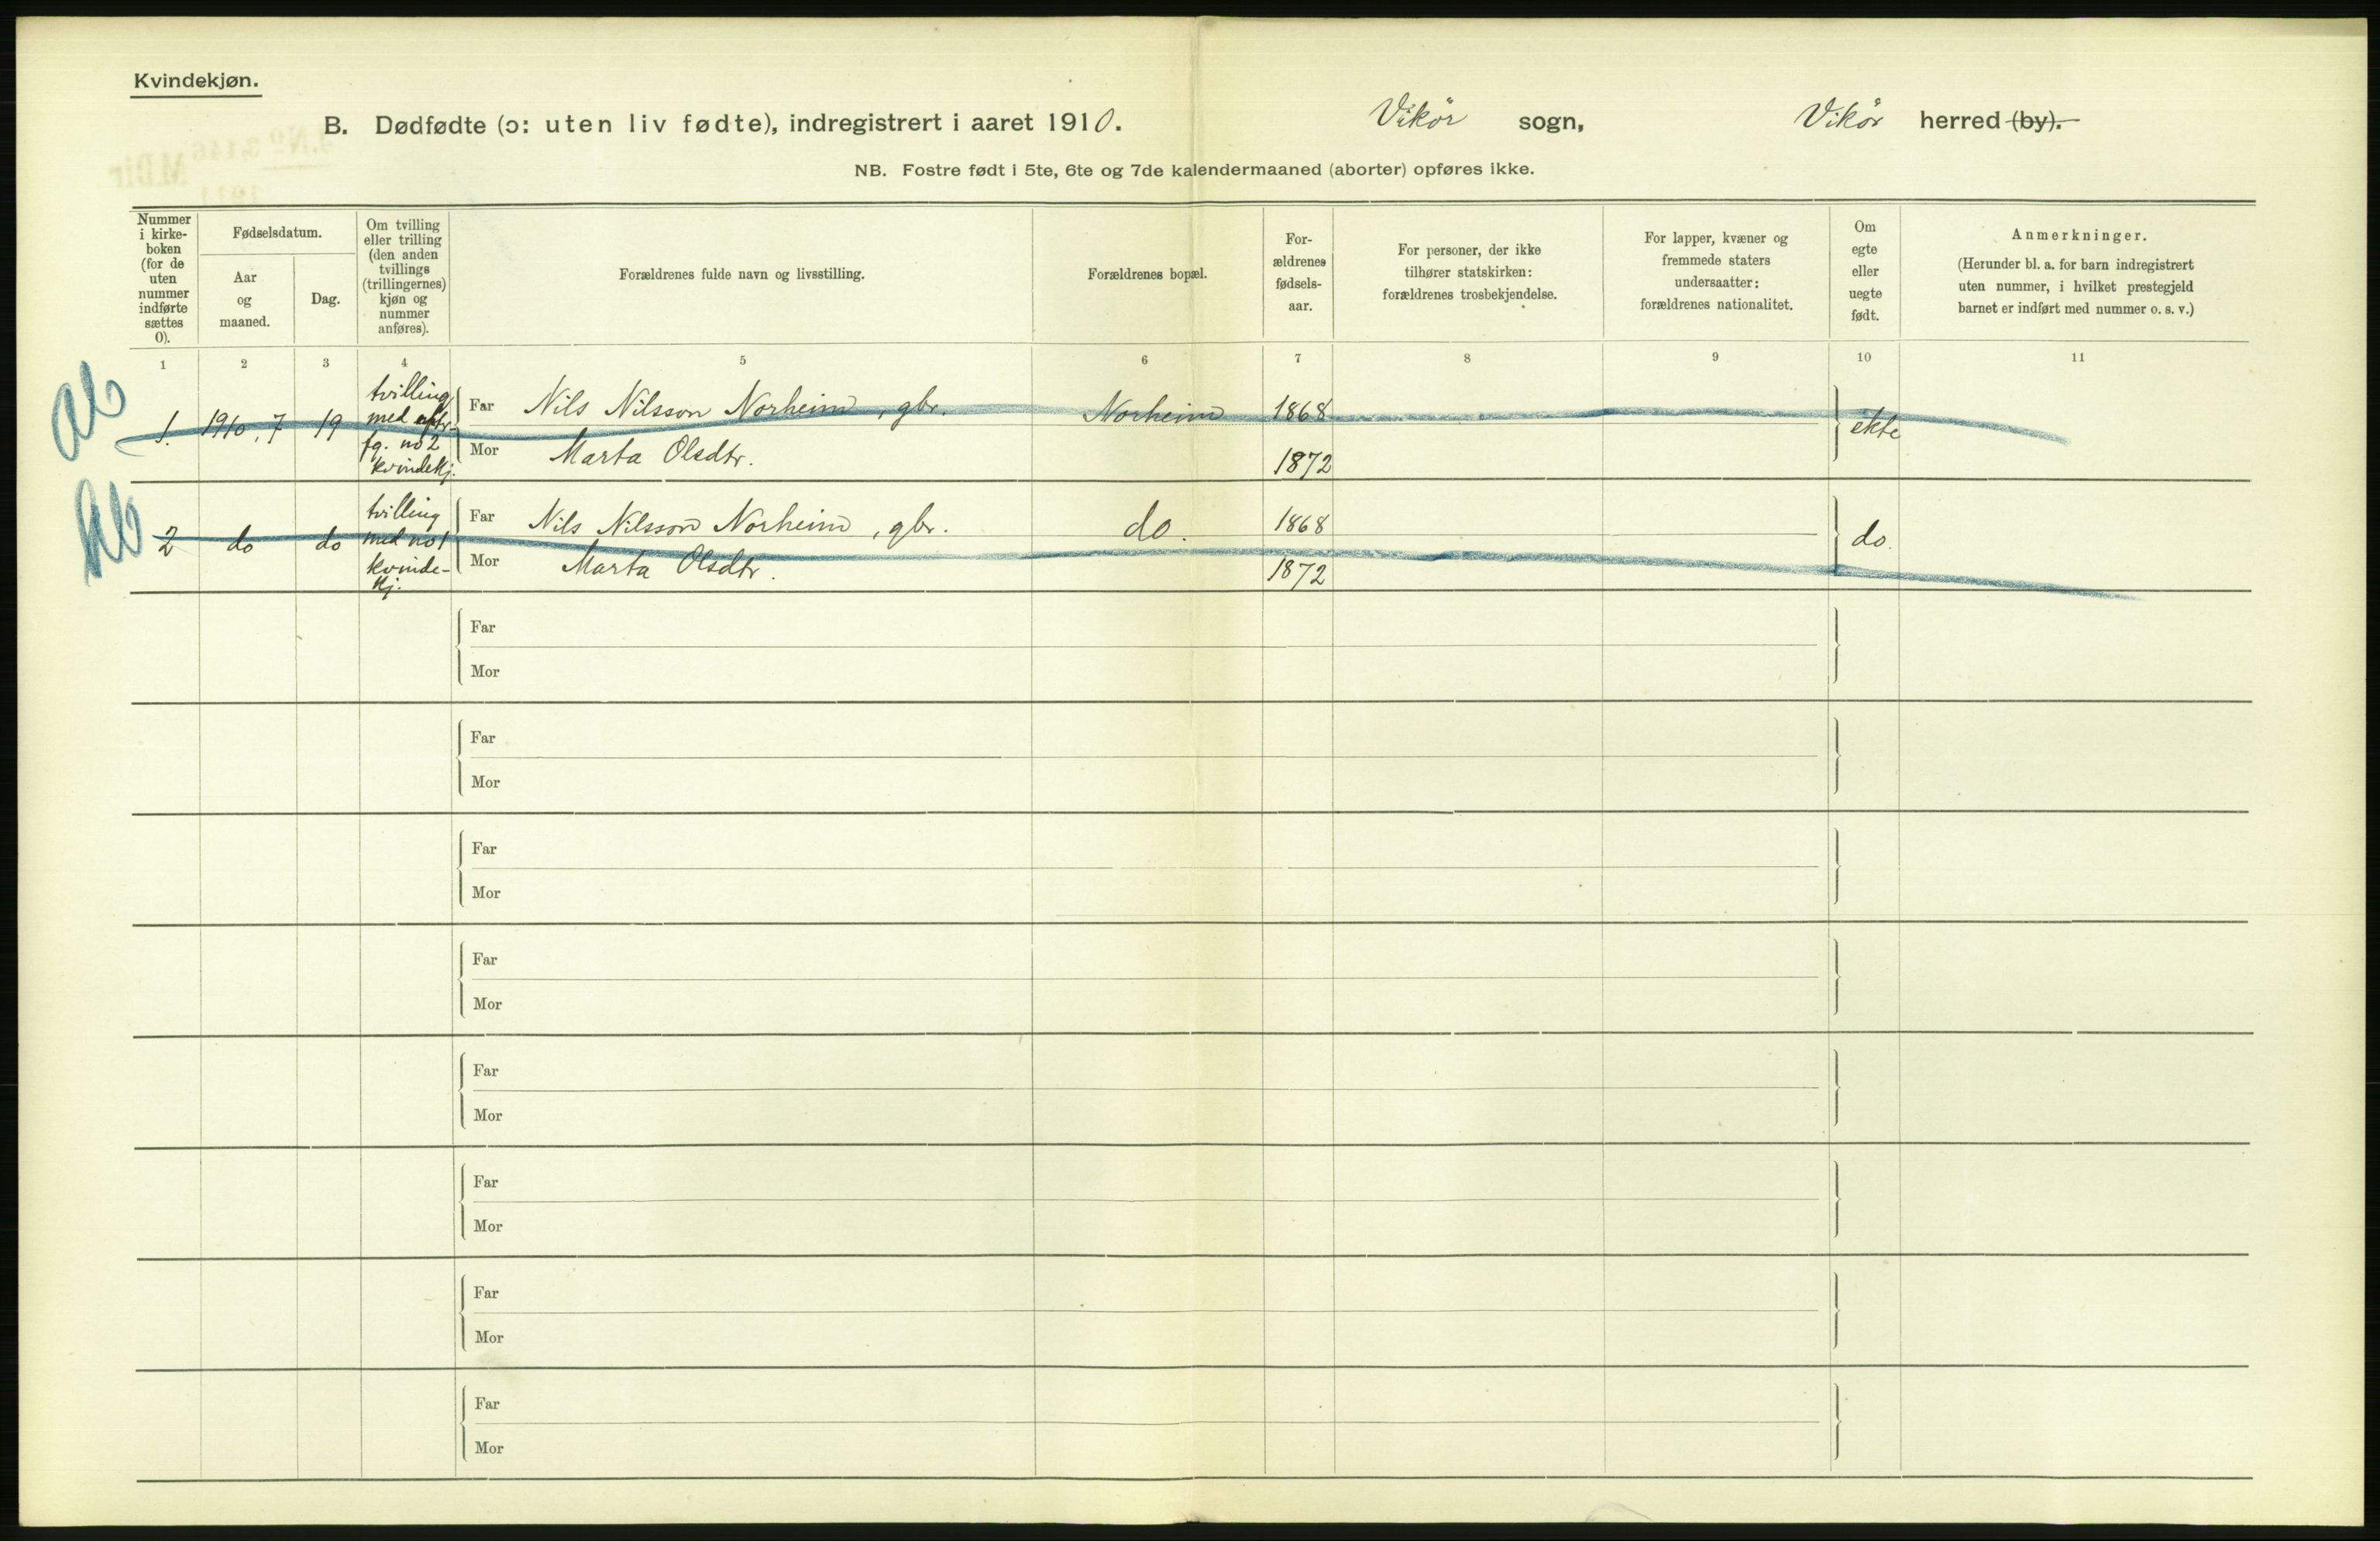 Kvindekjøn.
B. Dødfødte (ɔ: uten liv fødte), indregistrert i aaret 1910. Vikör sogn, Vikör herred (by).
NB. Fostre født i 5te, 6te og 7de kalendermaaned (aborter) opføres ikke.
Nummer i kirke-boken (for de uten nummer indførte sættes 0).
Fødselsdatum.
Aar og maaned.
Dag.
Om tvilling eller trilling (den anden tvillings (trillingernes) kjøn og nummer anføres).
Forældrenes fulde navn og livsstilling.
Forældrenes bopæl.
For-ældrenes fødsels-aar.
For personer, der ikke tilhører statskirken: forældrenes trosbekjendelse.
For lapper, kvæner og fremmede staters undersaatter: forældrenes nationalitet.
Om egte eller uegte født.
Anmerkninger.
(Herunder bl. a. for barn indregistrert uten nummer, i hvilket prestegjeld barnet er indført med nummer o. s. v.)
1 2 3 4 5 6 7 8 9 10 11
ab
1. 1910, 7 19
tvilling
med
fg. no 2
kvindekj.
Far Nils Nilsson Norheim, gbr. Norheim 1868
Mor Marta Olsdtr. 1872
ekte
2 do do
tvilling
med no 1
kvinde-
kj.
Far Nils Nilsson Norheim, gbr. do. 1868
Mor Marta Olsdtr. 1872
do.
Far
Mor
Far
Mor
Far
Mor
Far
Mor
Far
Mor
Far
Mor
Far
Mor
Far
Mor